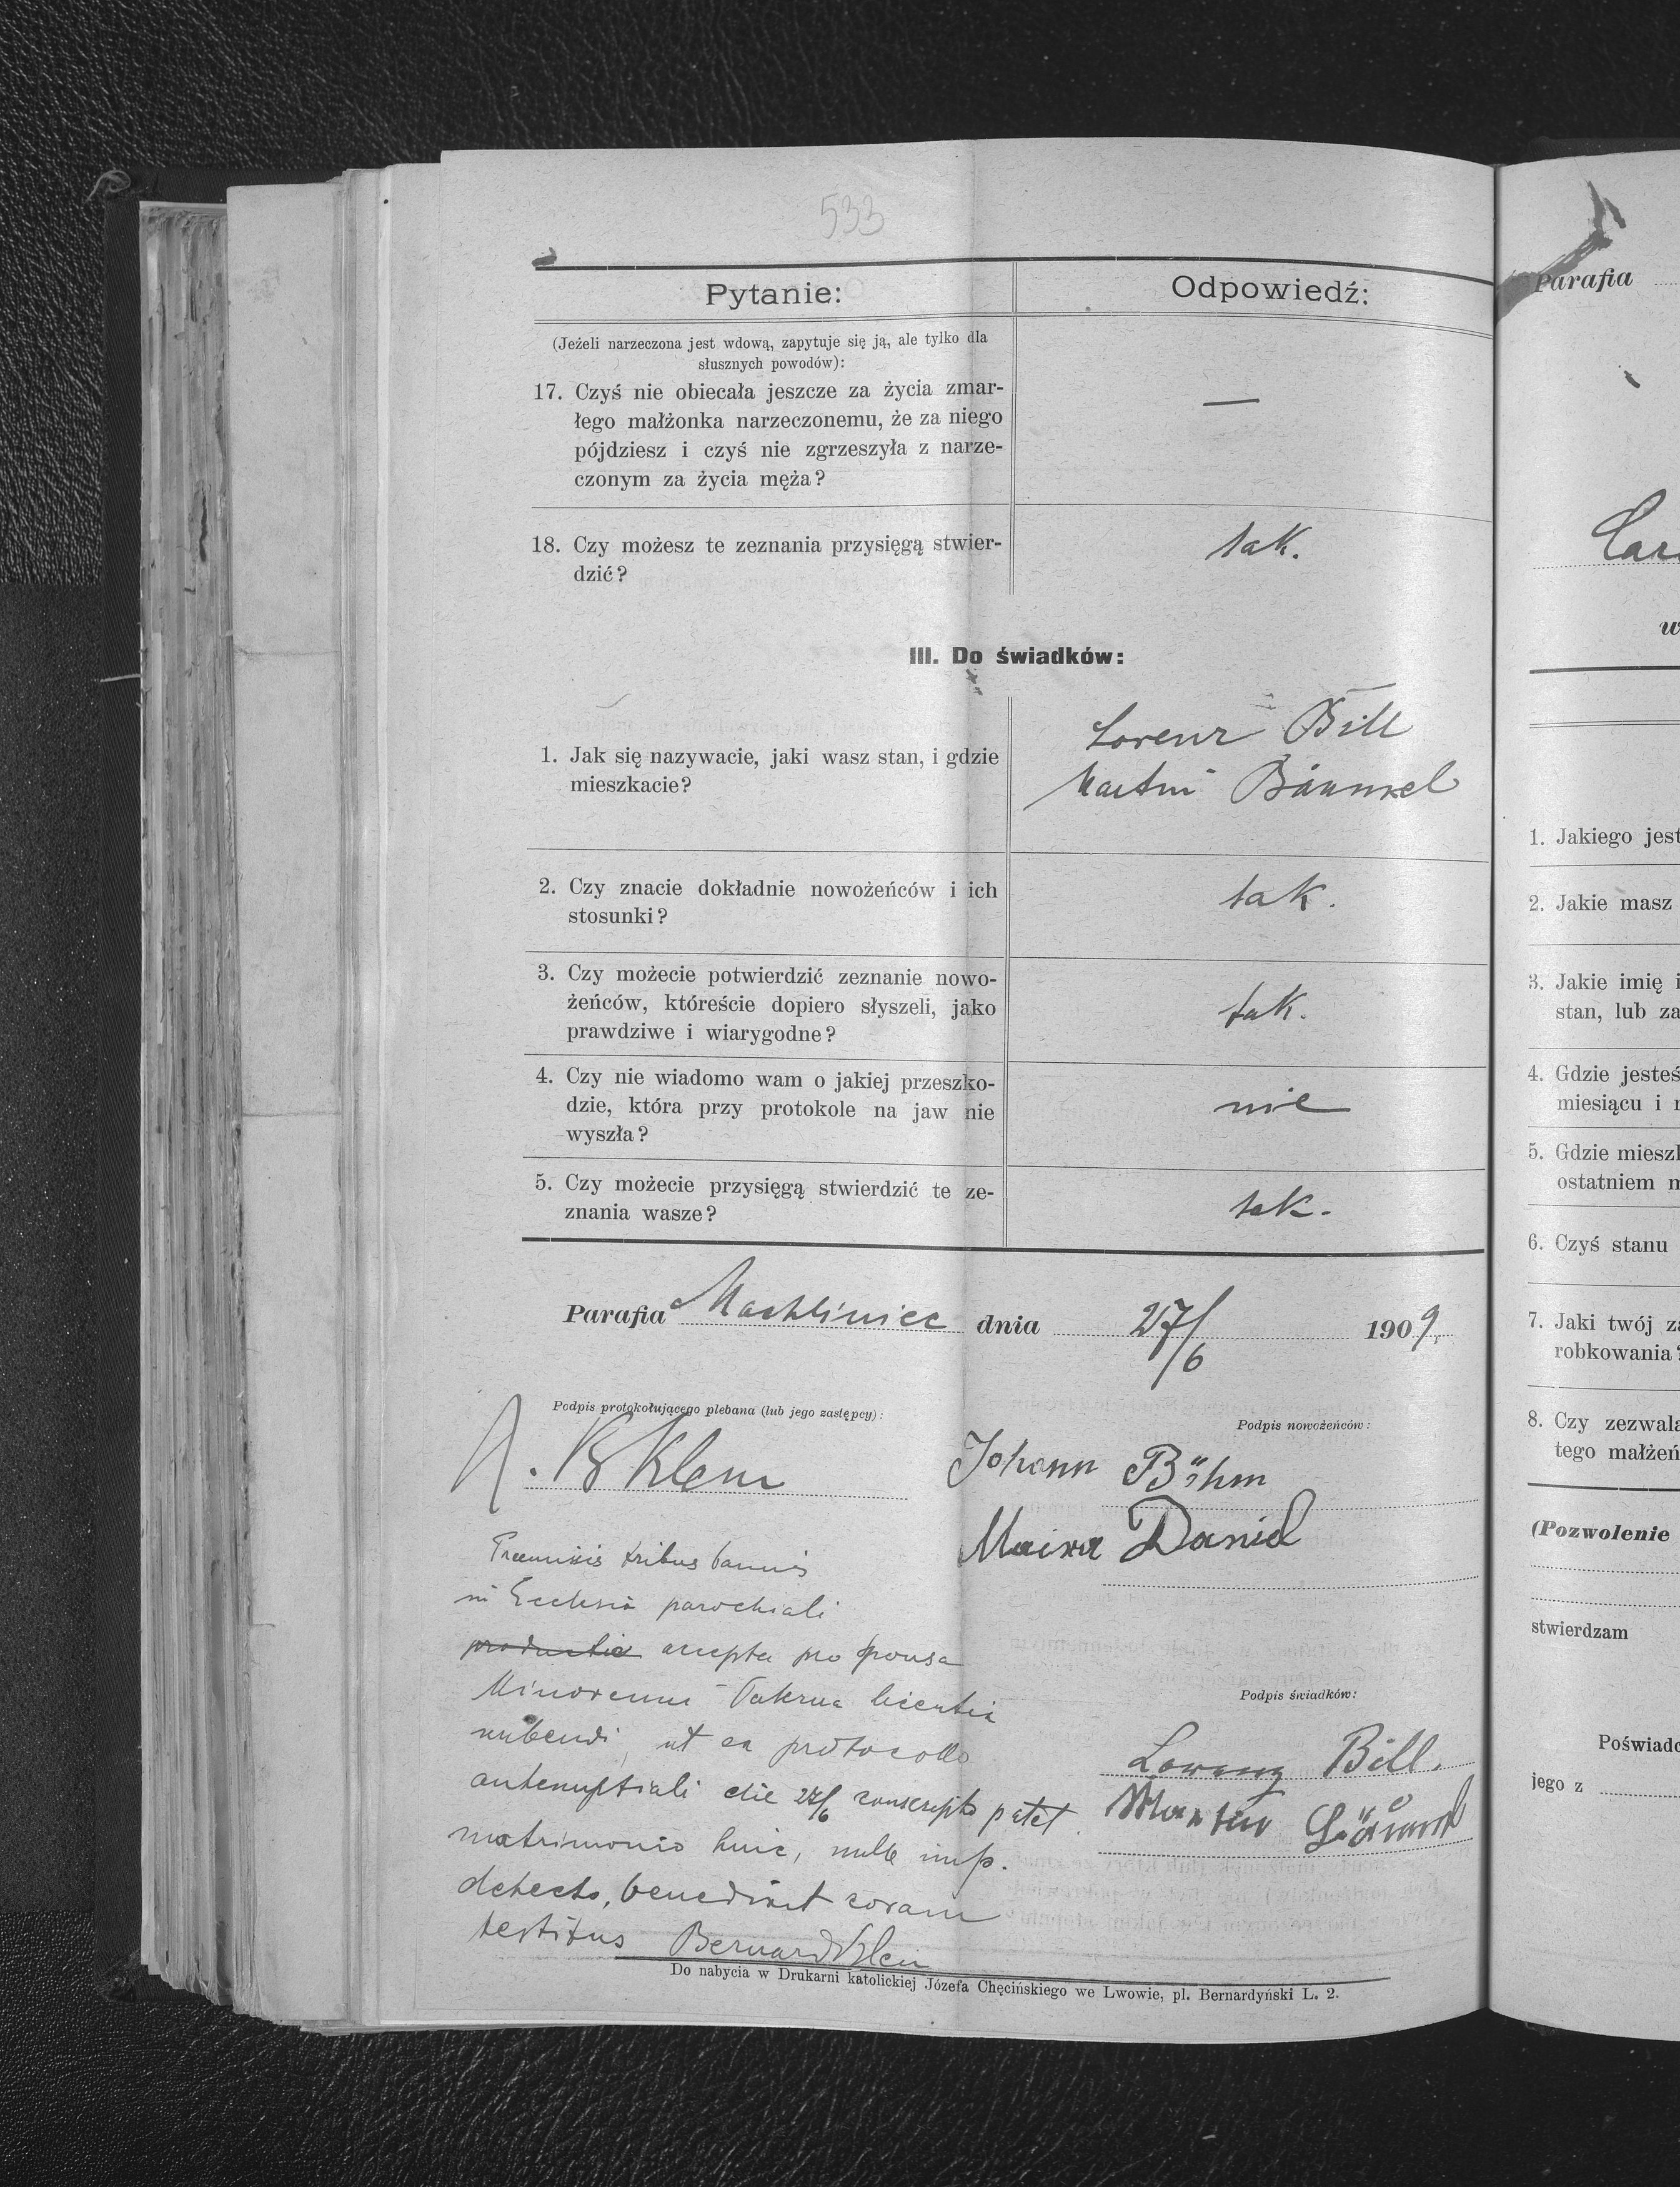 533
Pytanie:
Odpowiedź:
(Jeżeli narzeczona jest wdową, zapytuje się ją, ale tylko dla
słusznych powodów):
17. Czyś nie obiecała jeszcze za życia zmar-
łego małżonka narzeczonemu, że za niego
pójdziesz i czyś nie zgrzeszyła z narze-
czonym za życia męża?
—
18. Czy możesz te zeznania przysięgą stwier-
dzić?
tak.
III. Do świadków:
1. Jak się nazywacie, jaki wasz stan, i gdzie
mieszkacie?
Lorenz Bill
Martin
2. Czy znacie dokładnie nowożeńców i ich
stosunki?
tak.
3. Czy możecie potwierdzić zeznanie nowo-
żeńców, któreście dopiero słyszeli, jako
prawdziwe i wiarygodne?
tak.
4. Czy nie wiadomo wam o jakiej przeszko-
dzie, która przy protokole na jaw nie
wyszła?
nie
5. Czy możecie przysięgą stwierdzić te ze-
znania wasze?
tak.
Parafia Machliniec dnia 27/6 1909.
Podpis protokołującego plebana (lub jego zastępcy):
B Klein
Podpis nowożeńców:
Johann Böhm
Daniel
Praemissis tribus bannis
in Ecclesia parochiali
accepta pro sponsa
Minorenni Paterna licentia
nubendi, ut ex protocollo
antenuptiali die 27/6 conscripto patet
matrimonio huic, nullo imp.
detecto, benedixit coram
testibus Bernard Klein
Podpis świadków:
Lorenz Bill.
Martin
Do nabycia w Drukarni katolickiej Józefa Chęcińskiego we Lwowie, pl. Bernardyński L. 2.
Parafia
1. Jakiego jest
2. Jakie masz
3. Jakie imię i
stan, lub za
4. Gdzie jesteś
miesiącu i r
5. Gdzie mieszk
ostatniem m
6. Czyś stanu
7. Jaki twój za
robkowania?
8. Czy zezwala
tego małżeń
(Pozwolenie
stwierdzam
Poświadc
jego z